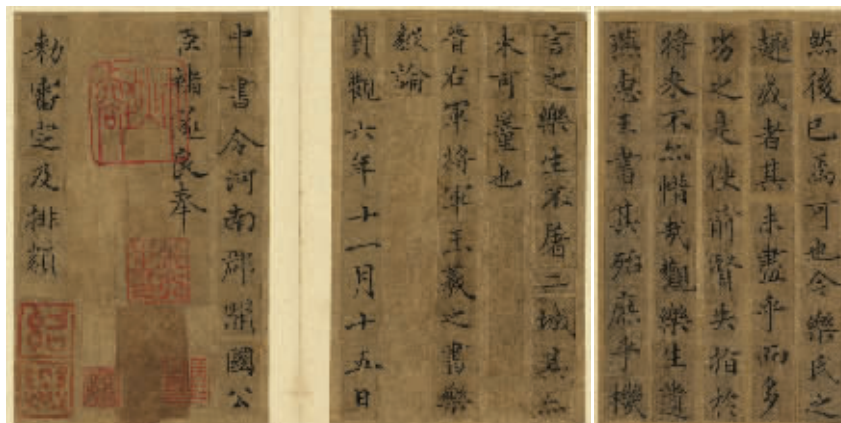 然後已焉可也今樂氏之
趣或者其未盡乎而多
劣之是使前賢失指於
將來不亦惜哉觀樂生遺
燕惠王書其殆庶乎機
言之樂生不屠二城其亦
未可量也
晉右軍將軍王羲之書樂
毅論
貞觀六年十一月十五日
中書令河南郡開國公
臣褚遂良奉
勅審定及排類